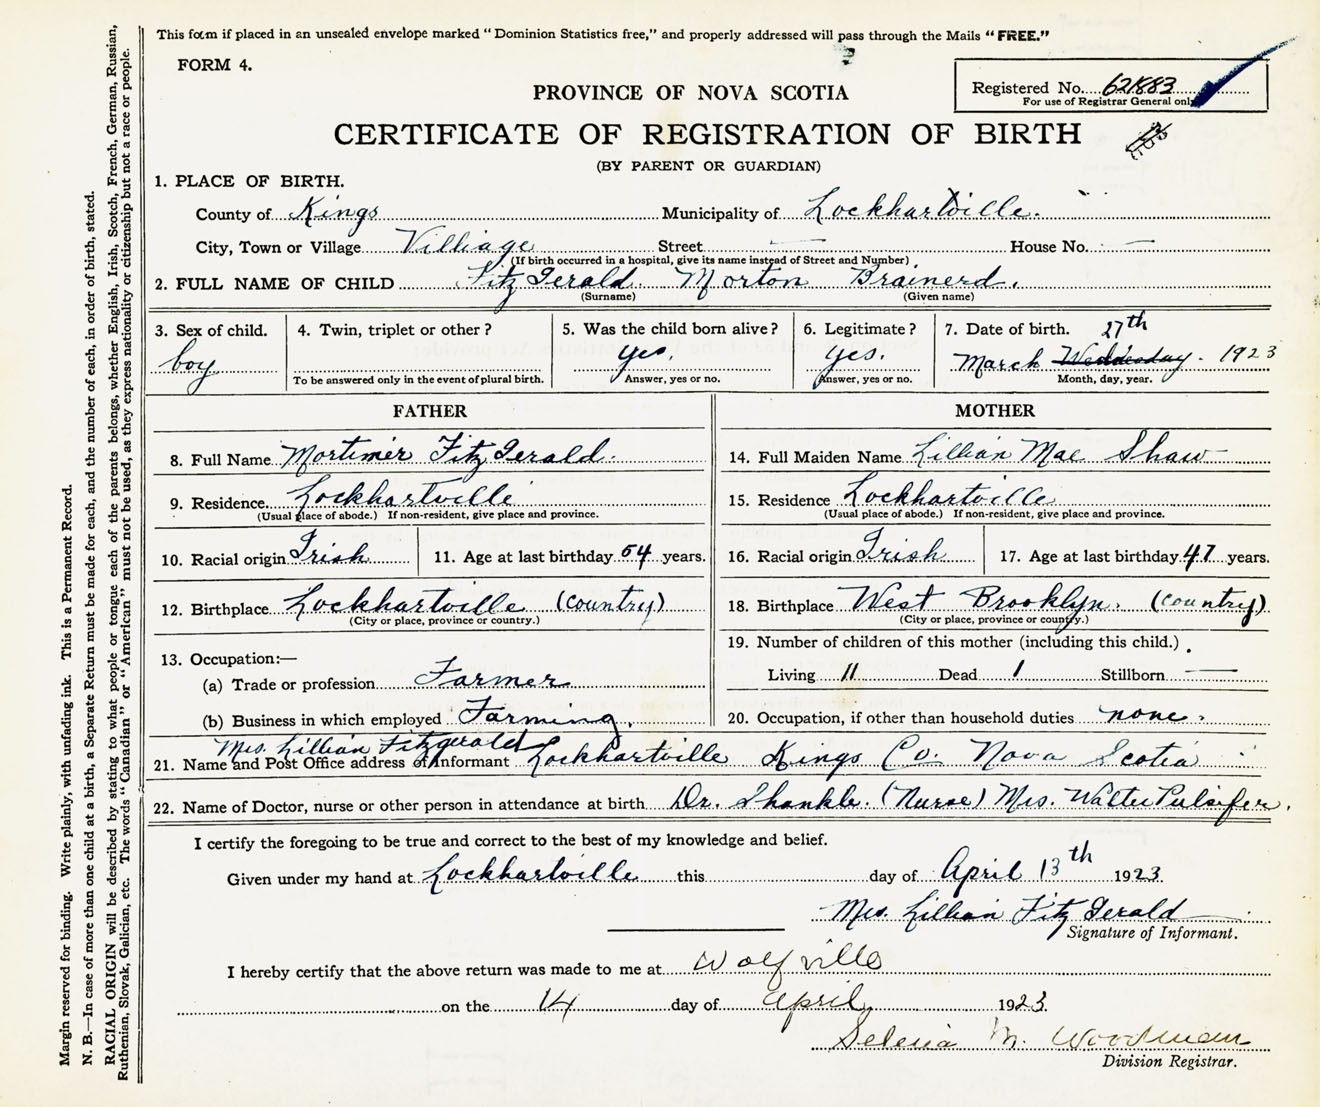 This form if placed in an unsealed envelope marked "Dominion Statistics free," and properly addressed will pass through the Mails "FREE."
FORM 4.
Registered No. 621883
For use of Registrar General only
PROVINCE OF NOVA SCOTIA
CERTIFICATE OF REGISTRATION OF BIRTH
(BY PARENT OR GUARDIAN)
1. PLACE OF BIRTH.
County of Kings Municipality of Lockhartville.
City, Town or Village Villiage Street — House No. —
(If birth occurred in a hospital, give its name instead of Street and Number)
2. FULL NAME OF CHILD Fitz Gerald. Morton Brainerd.
(Surname) (Given name)
3. Sex of child. 4. Twin, triplet or other? 5. Was the child born alive? 6. Legitimate? 7. Date of birth. 27th
boy yes. yes. March Wednesday. 1923
To be answered only in the event of plural birth. Answer, yes or no. Answer, yes or no. Month, day, year.
FATHER MOTHER
8. Full Name Mortimer Fitz Gerald. 14. Full Maiden Name Lillian Mae Shaw
9. Residence. Lockhartville 15. Residence Lockhartville
(Usual place of abode.) If non-resident, give place and province. (Usual place of abode.) If non-resident, give place and province.
10. Racial origin Irish 11. Age at last birthday 54 years. 16. Racial origin Irish 17. Age at last birthday 47 years.
12. Birthplace Lockhartville (country) 18. Birthplace West Brooklyn. (country)
(City or place, province or country.) (City or place, province or country.)
13. Occupation:— 19. Number of children of this mother (including this child.)
(a) Trade or profession Farmer Living 11 Dead 1 Stillborn —
(b) Business in which employed Farming. 20. Occupation, if other than household duties none.
Mrs. Lillian Fitzgerald
21. Name and Post Office address of Informant Lockhartville Kings Co. Nova Scotia
22. Name of Doctor, nurse or other person in attendance at birth Dr. Shankle. (Nurse) Mrs. Walter Pulsifer.
I certify the foregoing to be true and correct to the best of my knowledge and belief.
Given under my hand at Lockhartville this day of April 13th 1923.
Mrs. Lillian Fitz Gerald
Signature of Informant.
I hereby certify that the above return was made to me at Wolfville
on the 14 day of April 1923.
Selena M. Woodman
Division Registrar.
Margin reserved for binding. Write plainly, with unfading ink. This is a Permanent Record.
N. B.—In case of more than one child at a birth, a Separate Return must be made for each, and the number of each, in order of birth, stated.
RACIAL ORIGIN will be described by stating to what people or tongue each of the parents belongs, whether English, Irish, Scotch, French, German, Russian,
Ruthenian, Slovak, Galician, etc. The words "Canadian" or "American" must not be used, as they express nationality or citizenship but not a race or people.